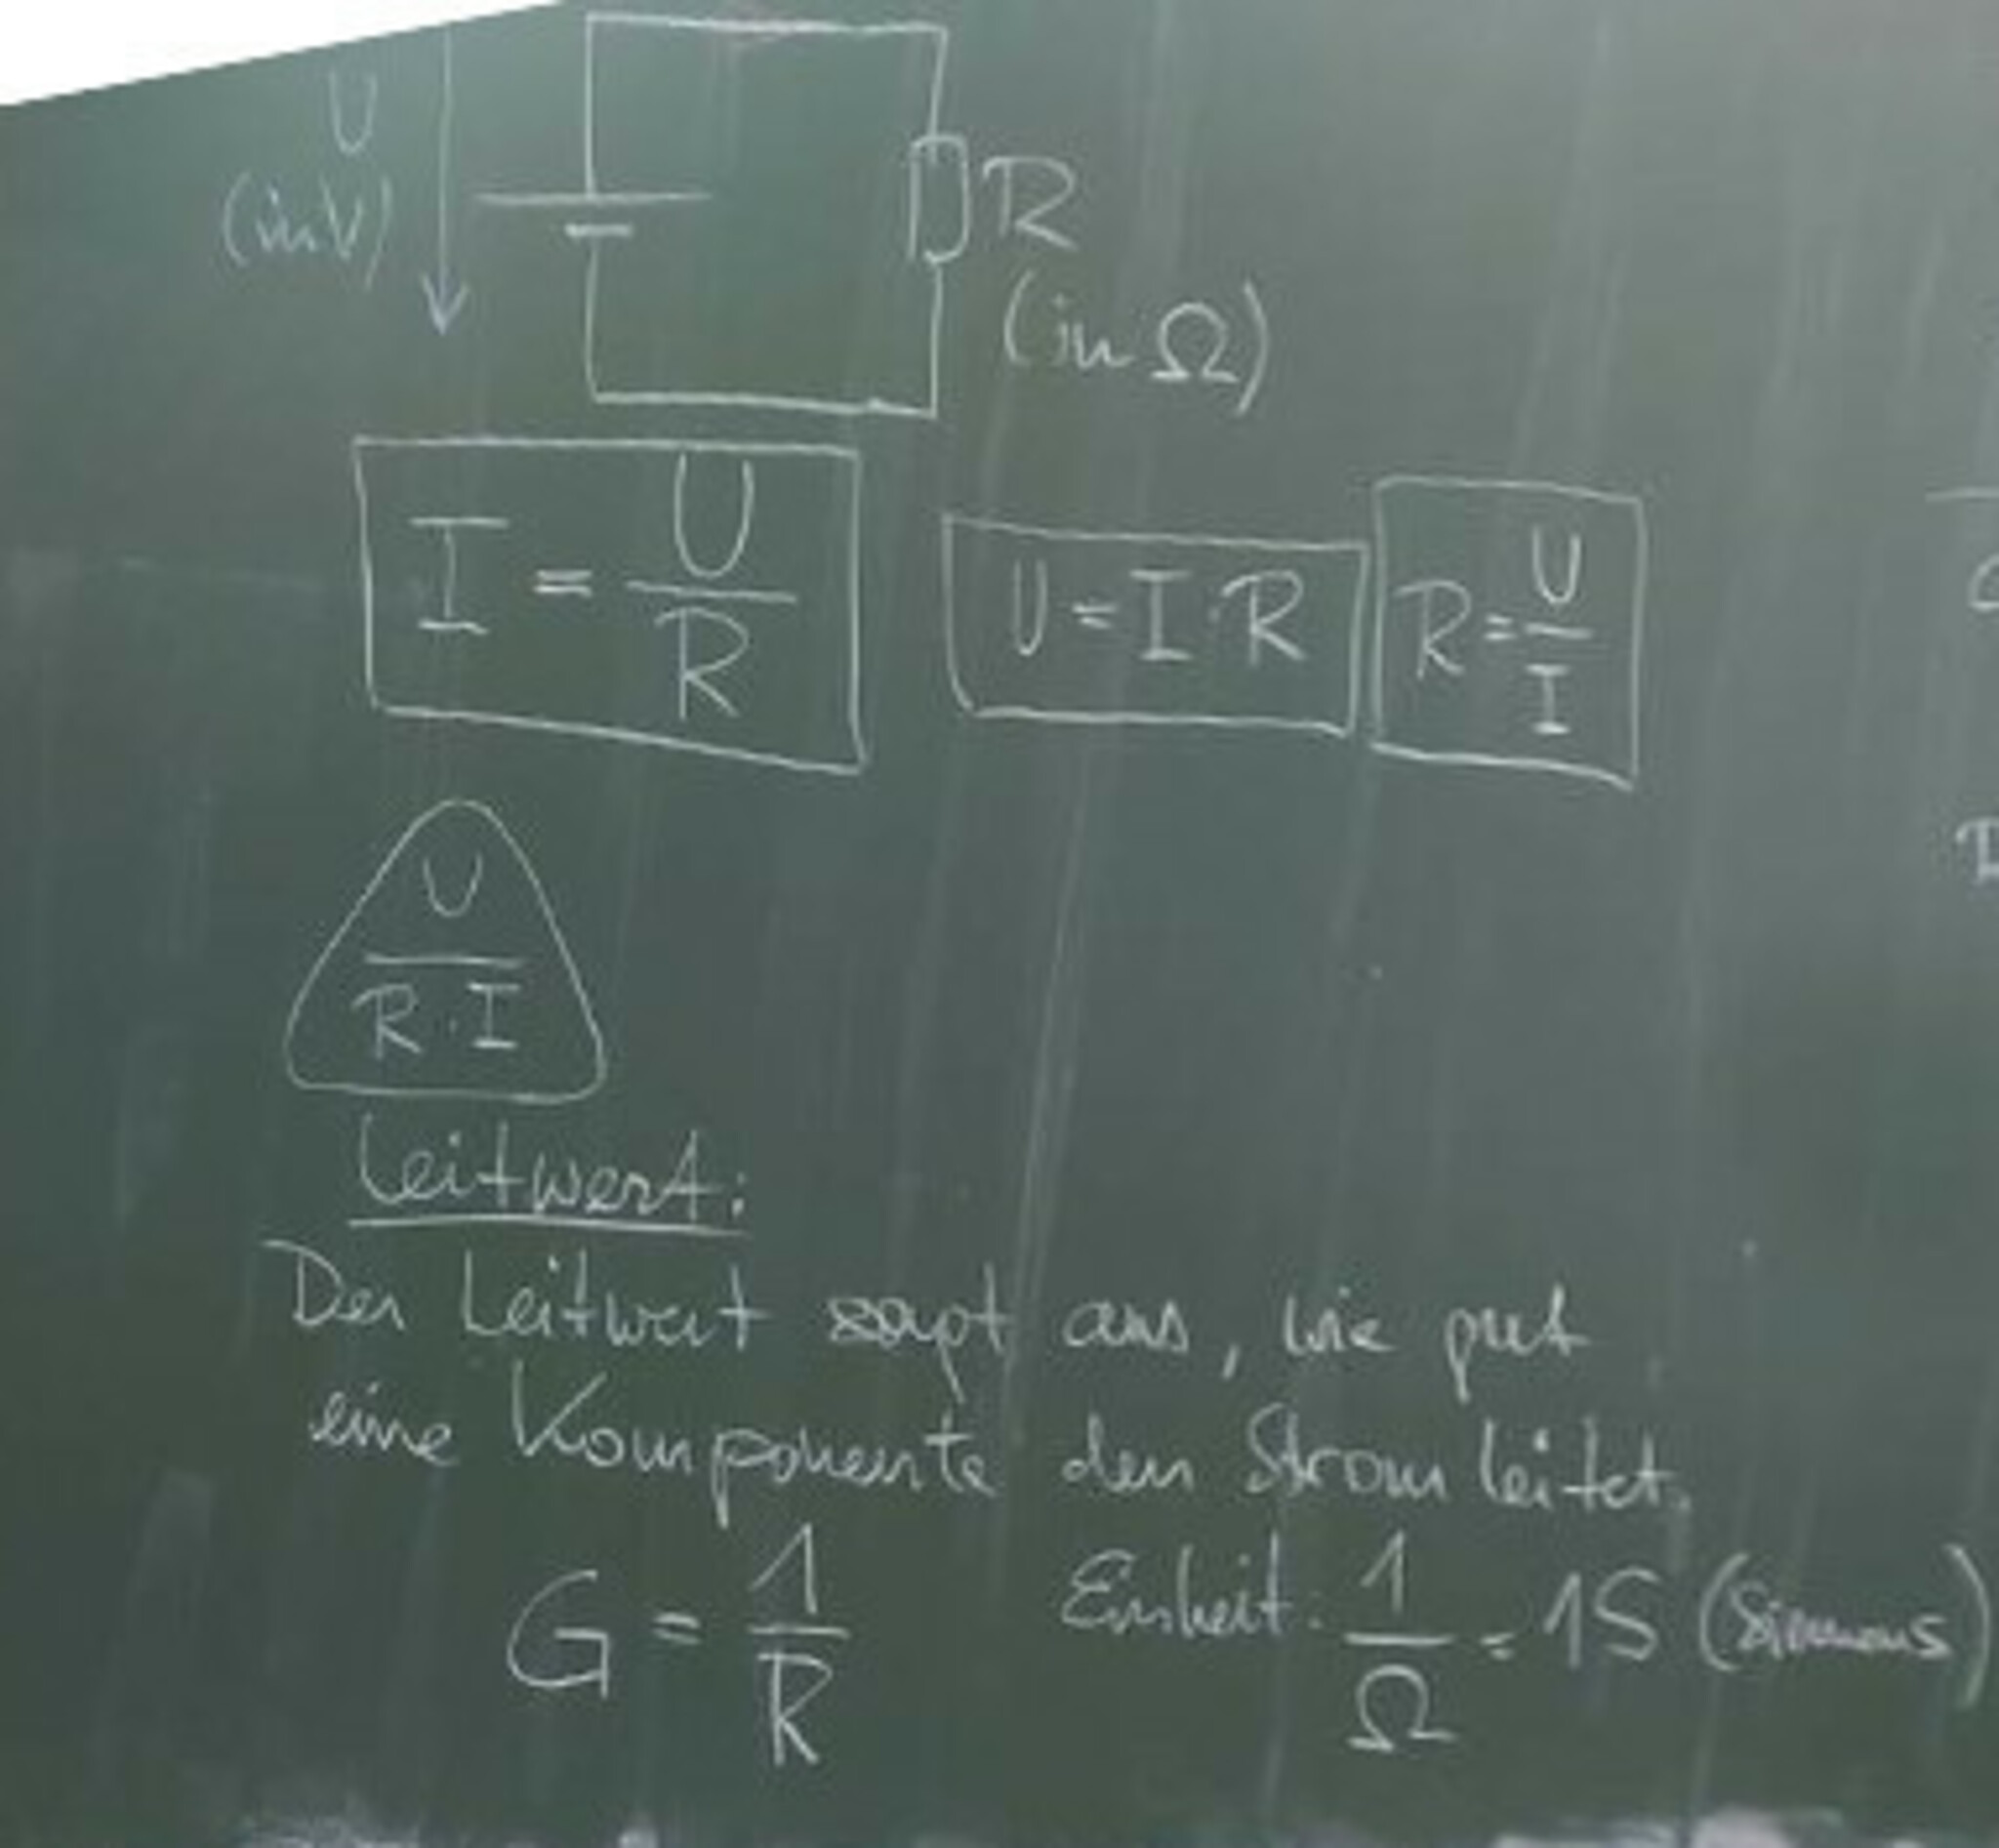 U
(in V)
R
(in Ω)
I = U/R
U = I · R
R = U/I
U
R · I
Leitwert:
Der Leitwert sagt aus, wie gut
eine Komponente den Strom leitet.
G = 1/R
Einheit: 1/Ω = 1S (Simmons)